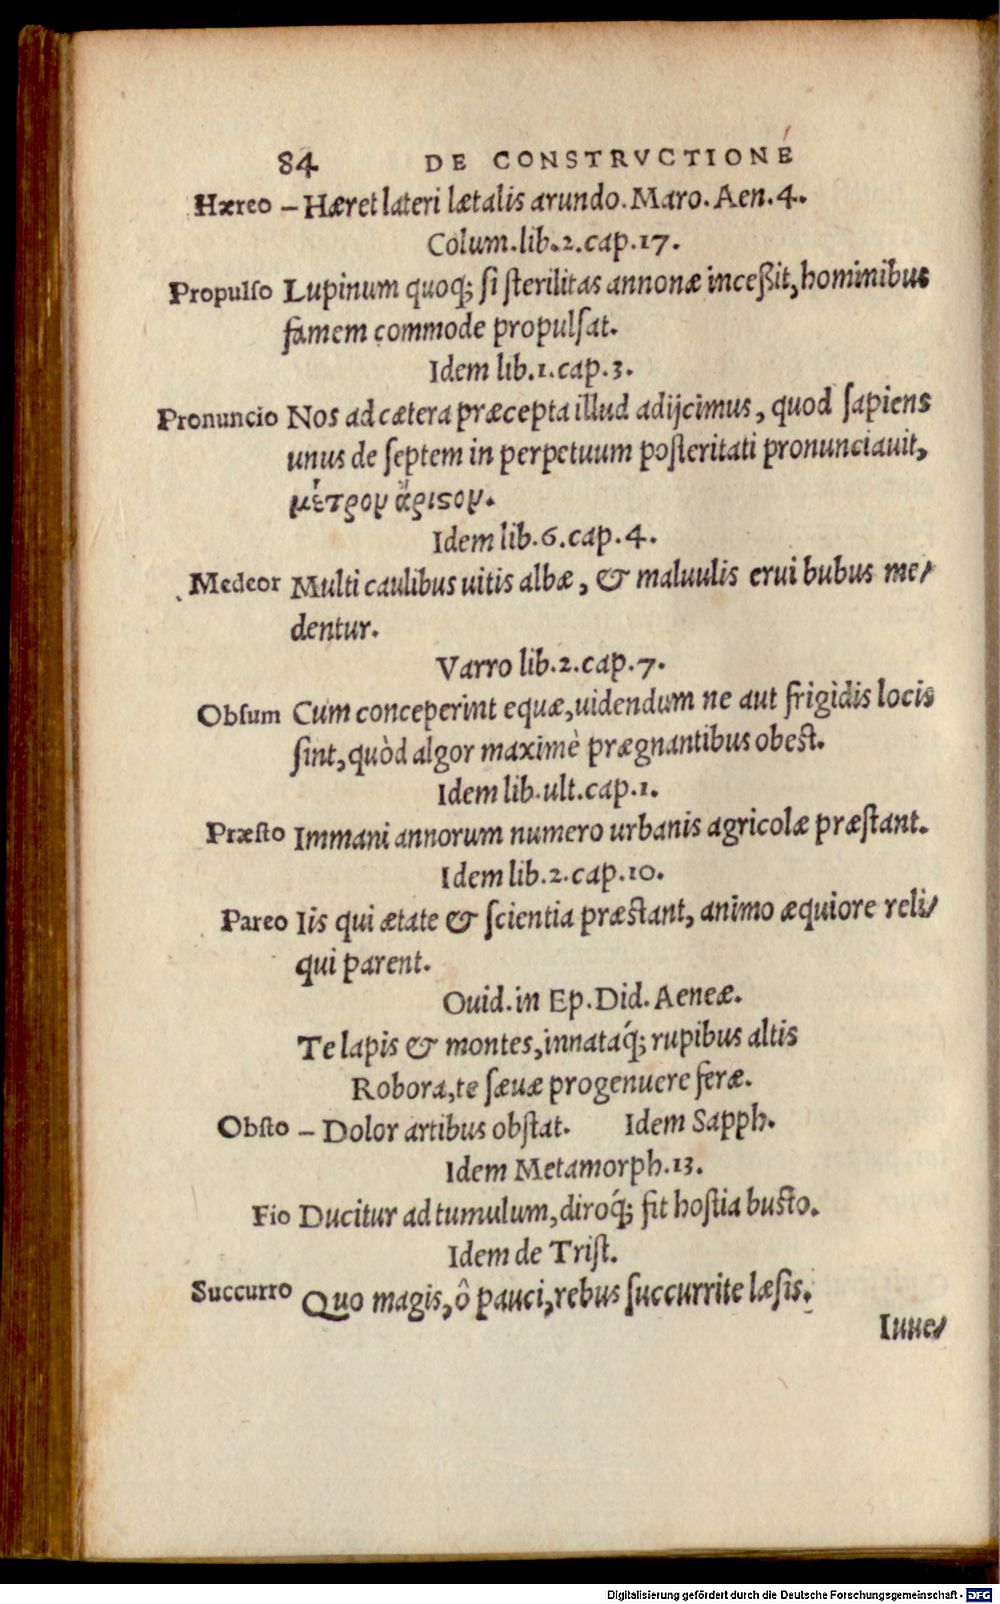 84 DE CONSTRVCTIONE
Hæreo – Hæret lateri lætalis arundo. Maro. Aen. 4.
Colum. lib. 2. cap. 17.
Propulſo Lupinum quoq; ſi ſterilitas annonæ inceßit, hominibus
famem commode propulſat.
Idem lib. 1. cap. 3.
Pronuncio Nos ad cætera præcepta illud adijcimus, quod ſapiens
unus de ſeptem in perpetuum poſteritati pronunciauit,
μέτρον ἄριςον.
Idem lib. 6. cap. 4.
Medeor Multi caulibus uitis albæ, & maluulis erui bubus me/
dentur.
Varro lib. 2. cap. 7.
Obſum Cum conceperint equæ, uidendum ne aut frigidis locis
ſint, quòd algor maximè prægnantibus obeſt.
Idem lib. ult. cap. 1.
Præſto Immani annorum numero urbanis agricolæ præſtant.
Idem lib. 2. cap. 10.
Pareo Iis qui ætate & ſcientia præſtant, animo æquiore reli/
qui parent.
Ouid. in Ep. Did. Aeneæ.
Te lapis & montes, innataq́; rupibus altis
Robora, te ſæuæ progenuere feræ.
Obſto – Dolor artibus obſtat. Idem Sapph.
Idem Metamorph. 13.
Fio Ducitur ad tumulum, diroq́; fit hoſtia buſto.
Idem de Triſt.
Succurro Quo magis, ô pauci, rebus ſuccurrite læſis.
Iuue/
Digitalisierung gefördert durch die Deutsche Forschungsgemeinschaft - DFG